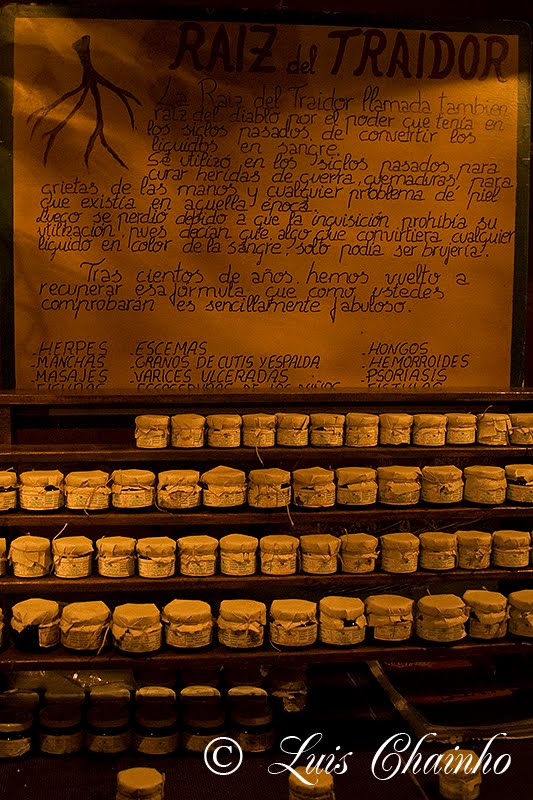 RAIZ del TRAIDOR
La Raiz del Traidor llamada tambien
raiz del diablo por el poder que tenia en
los siglos pasados, de convertir los
liquidos en sangre.
Se utilizó en los siglos pasados para
curar heridas de guerra, quemaduras, para
grietas de las manos y cualquier problema de piel
que existía en aquella época.
Luego se perdió debido a que la inquisición prohibía su
utilización, pues decían que algo que convirtiera cualquier
liquido en color de la sangre, solo podía ser brujería!.
Tras cientos de años, hemos vuelto a
recuperar esa fórmula, que como ustedes
comprobarán es sencillamente fabuloso.
-HERPES -ESCEMAS -HONGOS
-MANCHAS -GRANOS DE CUTIS Y ESPALDA -HEMORROIDES
-MASAJES -VARICES ULCERADAS -PSORIASIS
DE LOS NIÑOS -FISTULAS
© Luis Chainho